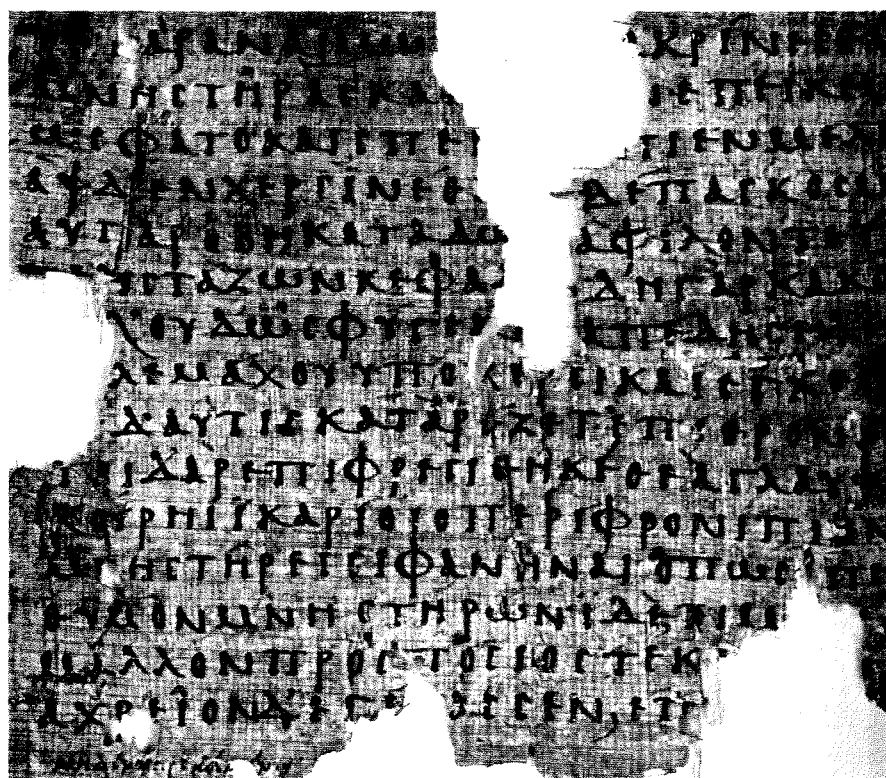 ΓΑΡΑΝΑΙΜΩ ΚΡΙΝΕΕϹ
ΜΝΗϹΤΗΡΑϹΚΑ ΕΠΕΙΚΕ
ΩϹΦΑΤΟΚΑΙϹΠΕΙ ΠΙΕΝΜΕΛ
ΑΨΔΕΝΧΕΡϹΙΝΕΘ ΔΕΠΑϹΚΟϹΜ
ΑΥΤΑΡΟΒΗΚΑΤΑΔΩΜΑΦΙΛΟΝΤΕΤ
ΥϹΤΑΖΩΝΚΕΦΑ ΔΗΓΑΡΚΑΚ
ΛΟΥΔΩϹΦΥΓΕΚ ΠΕΔΗϹΕ
ΛΕΜΑΧΟΥΥΠΟΧΕΡϹΙΚΑΙΕΓΧΕ
ΔΑΥΤΙϹΚΑΤΑΡΕΖΕΤΕΠΙΘΡΟΝ
ΔΑΡΕΠΙΦΡΕϹΙΘΗΚΕΘΕΑΓΛΑΥΚ
ΚΟΥΡΗΙΪΚΑΡΙΟΙΟΠΕΡΙΦΡΟΝΙΠΗΝ
ΜΝΗϹΤΗΡΕϹϹΙΦΑΝΗΝΑΙΟΠΩϹΠΕ
ΘΥΜΟΝΜΝΗϹΤΗΡΩΝΪΔΕΤΙΜ
ΜΑΛΛΟΝΠΡΟϹΠΟϹΙΟϹΤΕΚ
ΑΧΡΕΙΟΝΔΕΓΕ ϹϹΕΝΕΠ